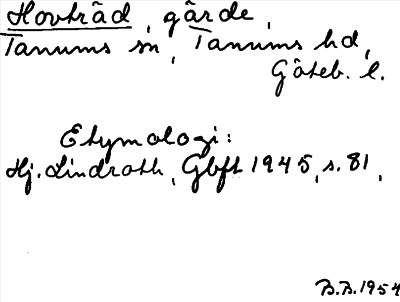 Hovträd, gärde,
Tanums sn, Tanums hd,
Göteb. l.
Etymologi:
Hj. Lindroth, Gbft 1945, s. 81,
B.B. 1954